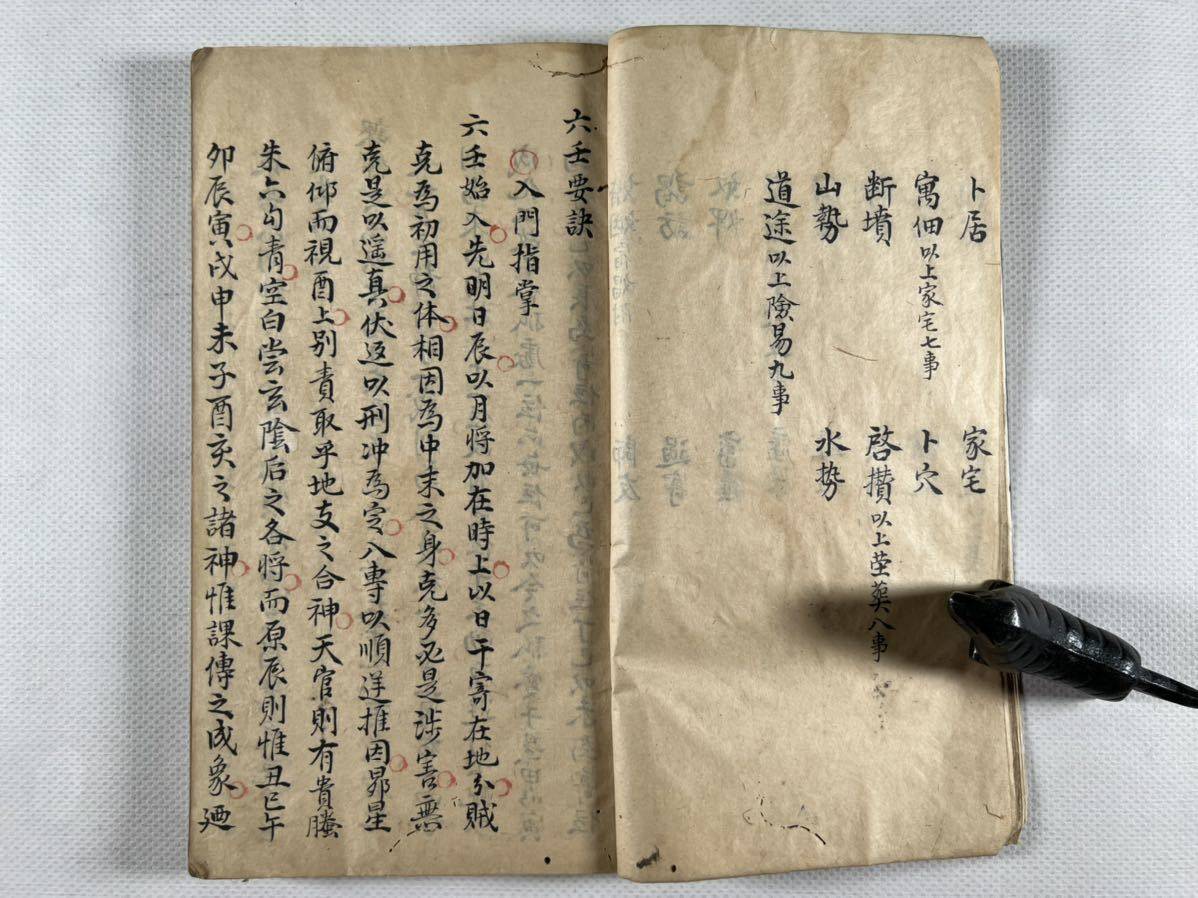 卜居　家宅
寓佃以上家宅七事　卜穴
断墳　啓攢以上茔葬八事
山勢　水势
道途以上險易九事
六壬要訣
入門指掌
六壬始入先明日辰以月将加在時上以日干寄在地分賊
克為初用之体相因為中末之身克多是涉害無
克是以遥真伏返以刑冲為定八專以順逆推因昴星
俯仰而視酉上别責取乎地支之合神天官則有貴螣
朱六勾青空白尝玄陰后之各将而原辰則惟丑巳午
卯辰寅戌申未子酉亥之諸神惟課傳之成象廼